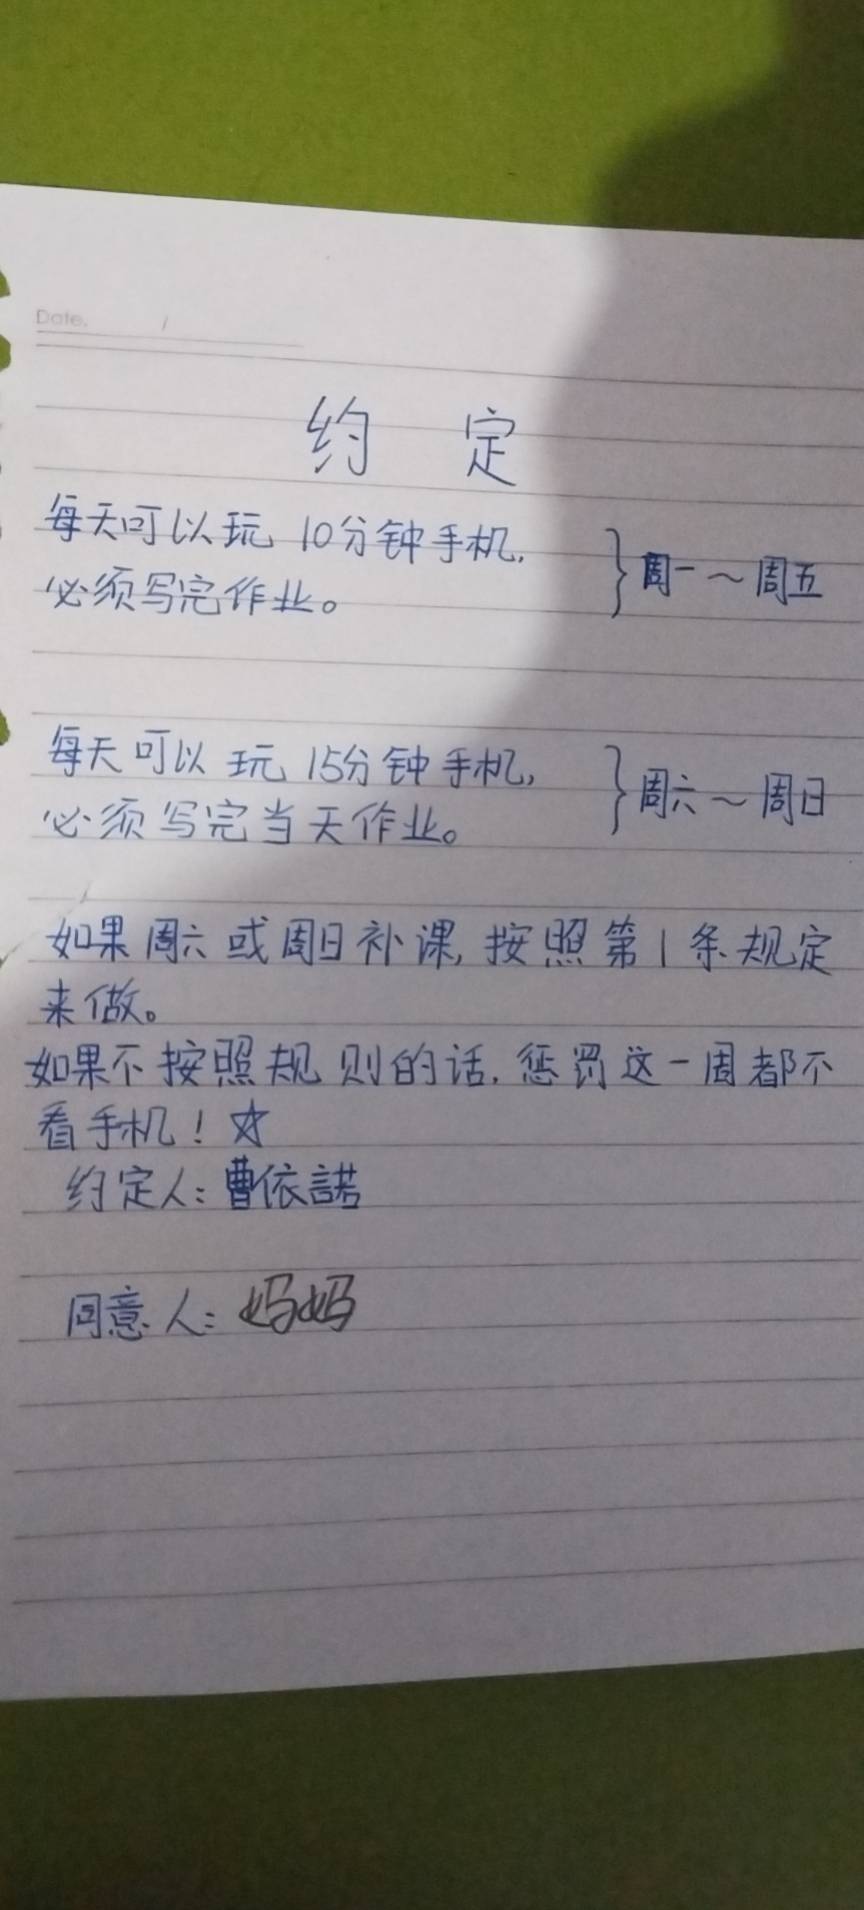 Date. /
约 定
每天可以玩 10分钟手机,
必须写完作业。 } 周一～周五
每天可以玩 15分钟手机,
必须写完当天作业。 } 周六～周日
如果周六或周日补课, 按照第1条规定
来做。
如果不按照规则的话, 惩罚这一周都不
看手机! ☆
约定人: 曹依諾
同意人: 妈妈